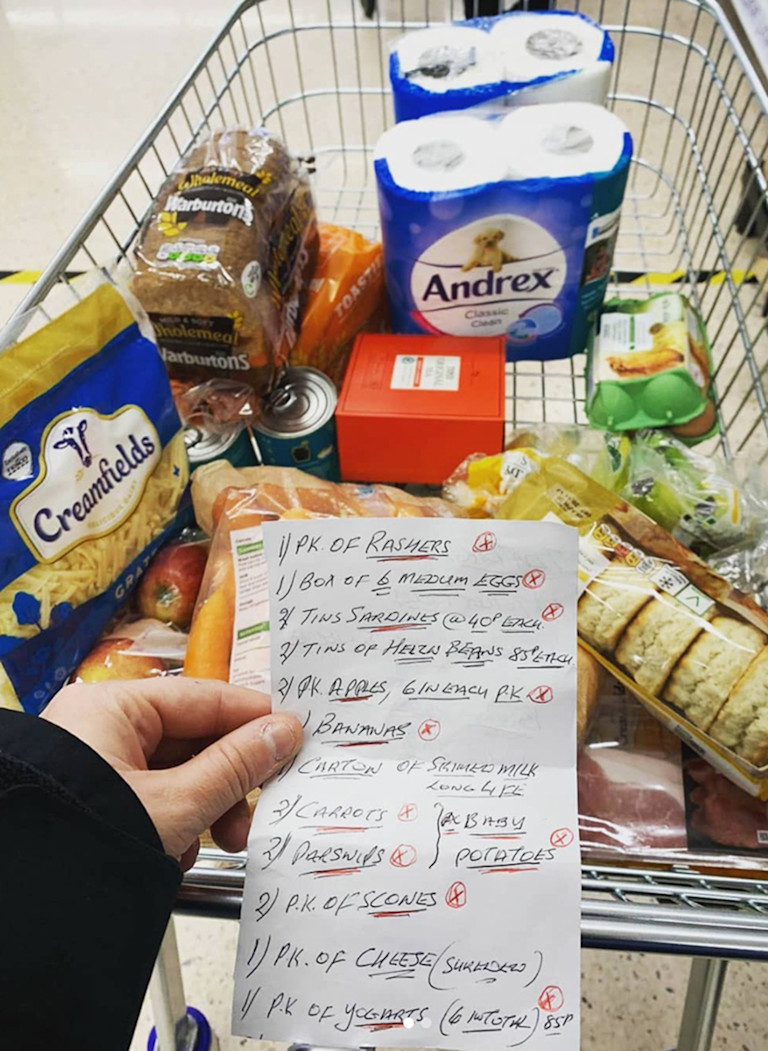 Wholemeal
Warburtons
Wholemeal
Warburtons
TOASTIE
Andrex
Classic
Clean
Creamfields
GRATED
1) PK. OF RASHERS
1) BOX OF 6 MEDIUM EGGS
2) TINS SARDINES @ 40P EACH.
2) TINS OF HEIZN BEANS 85P EACH
2) PK. APPLES, 6 IN EACH P.K.
1) BANANAS
1) CARTON OF SKIMED MILK
LONG LIFE
2) CARROTS
PK BABY
2) PARSNIPS
POTATOES
2) P.K. OF SCONES
1) P.K. OF CHEESE (SHREDED)
1) P.K OF YOGARTS (6 IN TOTAL) 85P